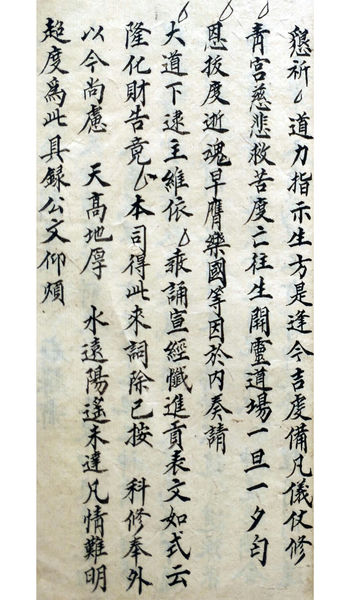 懇祈 道力指示生方是逢今吉虔備凡儀仗修
青宮慈悲救苦度亡往生開靈道場一旦一夕匄
恩拔度逝魂早膺樂國等因於內奏請
大道下逮主維依 乘誦宣經懺進貢表文如式云
隆化財告竟 本司得此來詞除已按 科修奉外
以今尚慮 天高地厚 水遠陽遙未達凡情難明
超度為此具錄公文仰煩